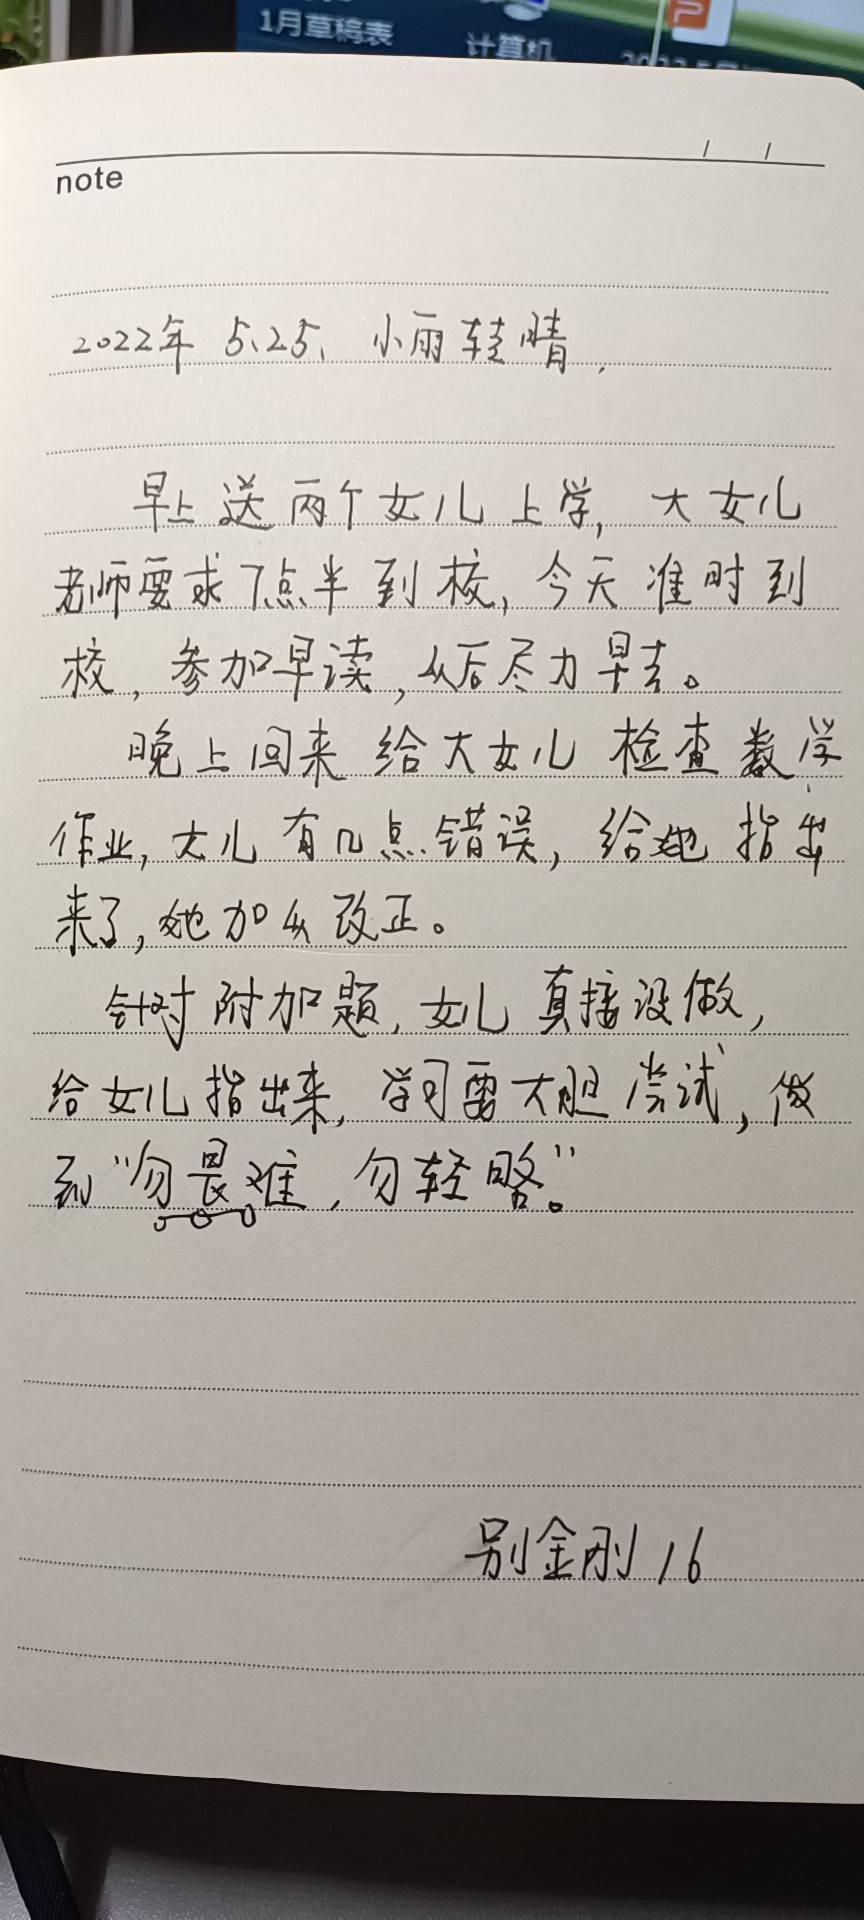 1月草稿表
计算机
note
2022年 5.25. 小雨转晴.
早上送两个女儿上学, 大女儿
老师要求7点半到校, 今天准时到
校, 参加早读, 以后尽力早去。
晚上回来给大女儿检查数学
作业, 大儿有几点错误, 给她指出
来了, 她加以改正。
针对附加题, 女儿直接没做,
给女儿指出来, 学习要大胆尝试, 做
到“勿畏难, 勿轻略”。
别金刚 16